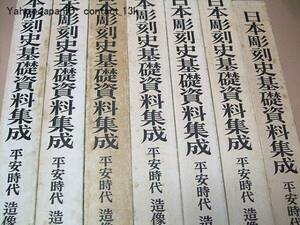 Yahoojapan contact_13k
日本彫刻史基礎資料集成 平安時代 造
本彫刻史基礎資料集成 平安時代 造像
本彫刻史基礎資料集成 平安時代 造像
本彫刻史基礎資料集成 平安時代 造像
本彫刻史基礎資料集成 平安時代 造像
本彫刻史基礎資料集成 平安時代 造像
日本彫刻史基礎資料集成 平安時代 造像